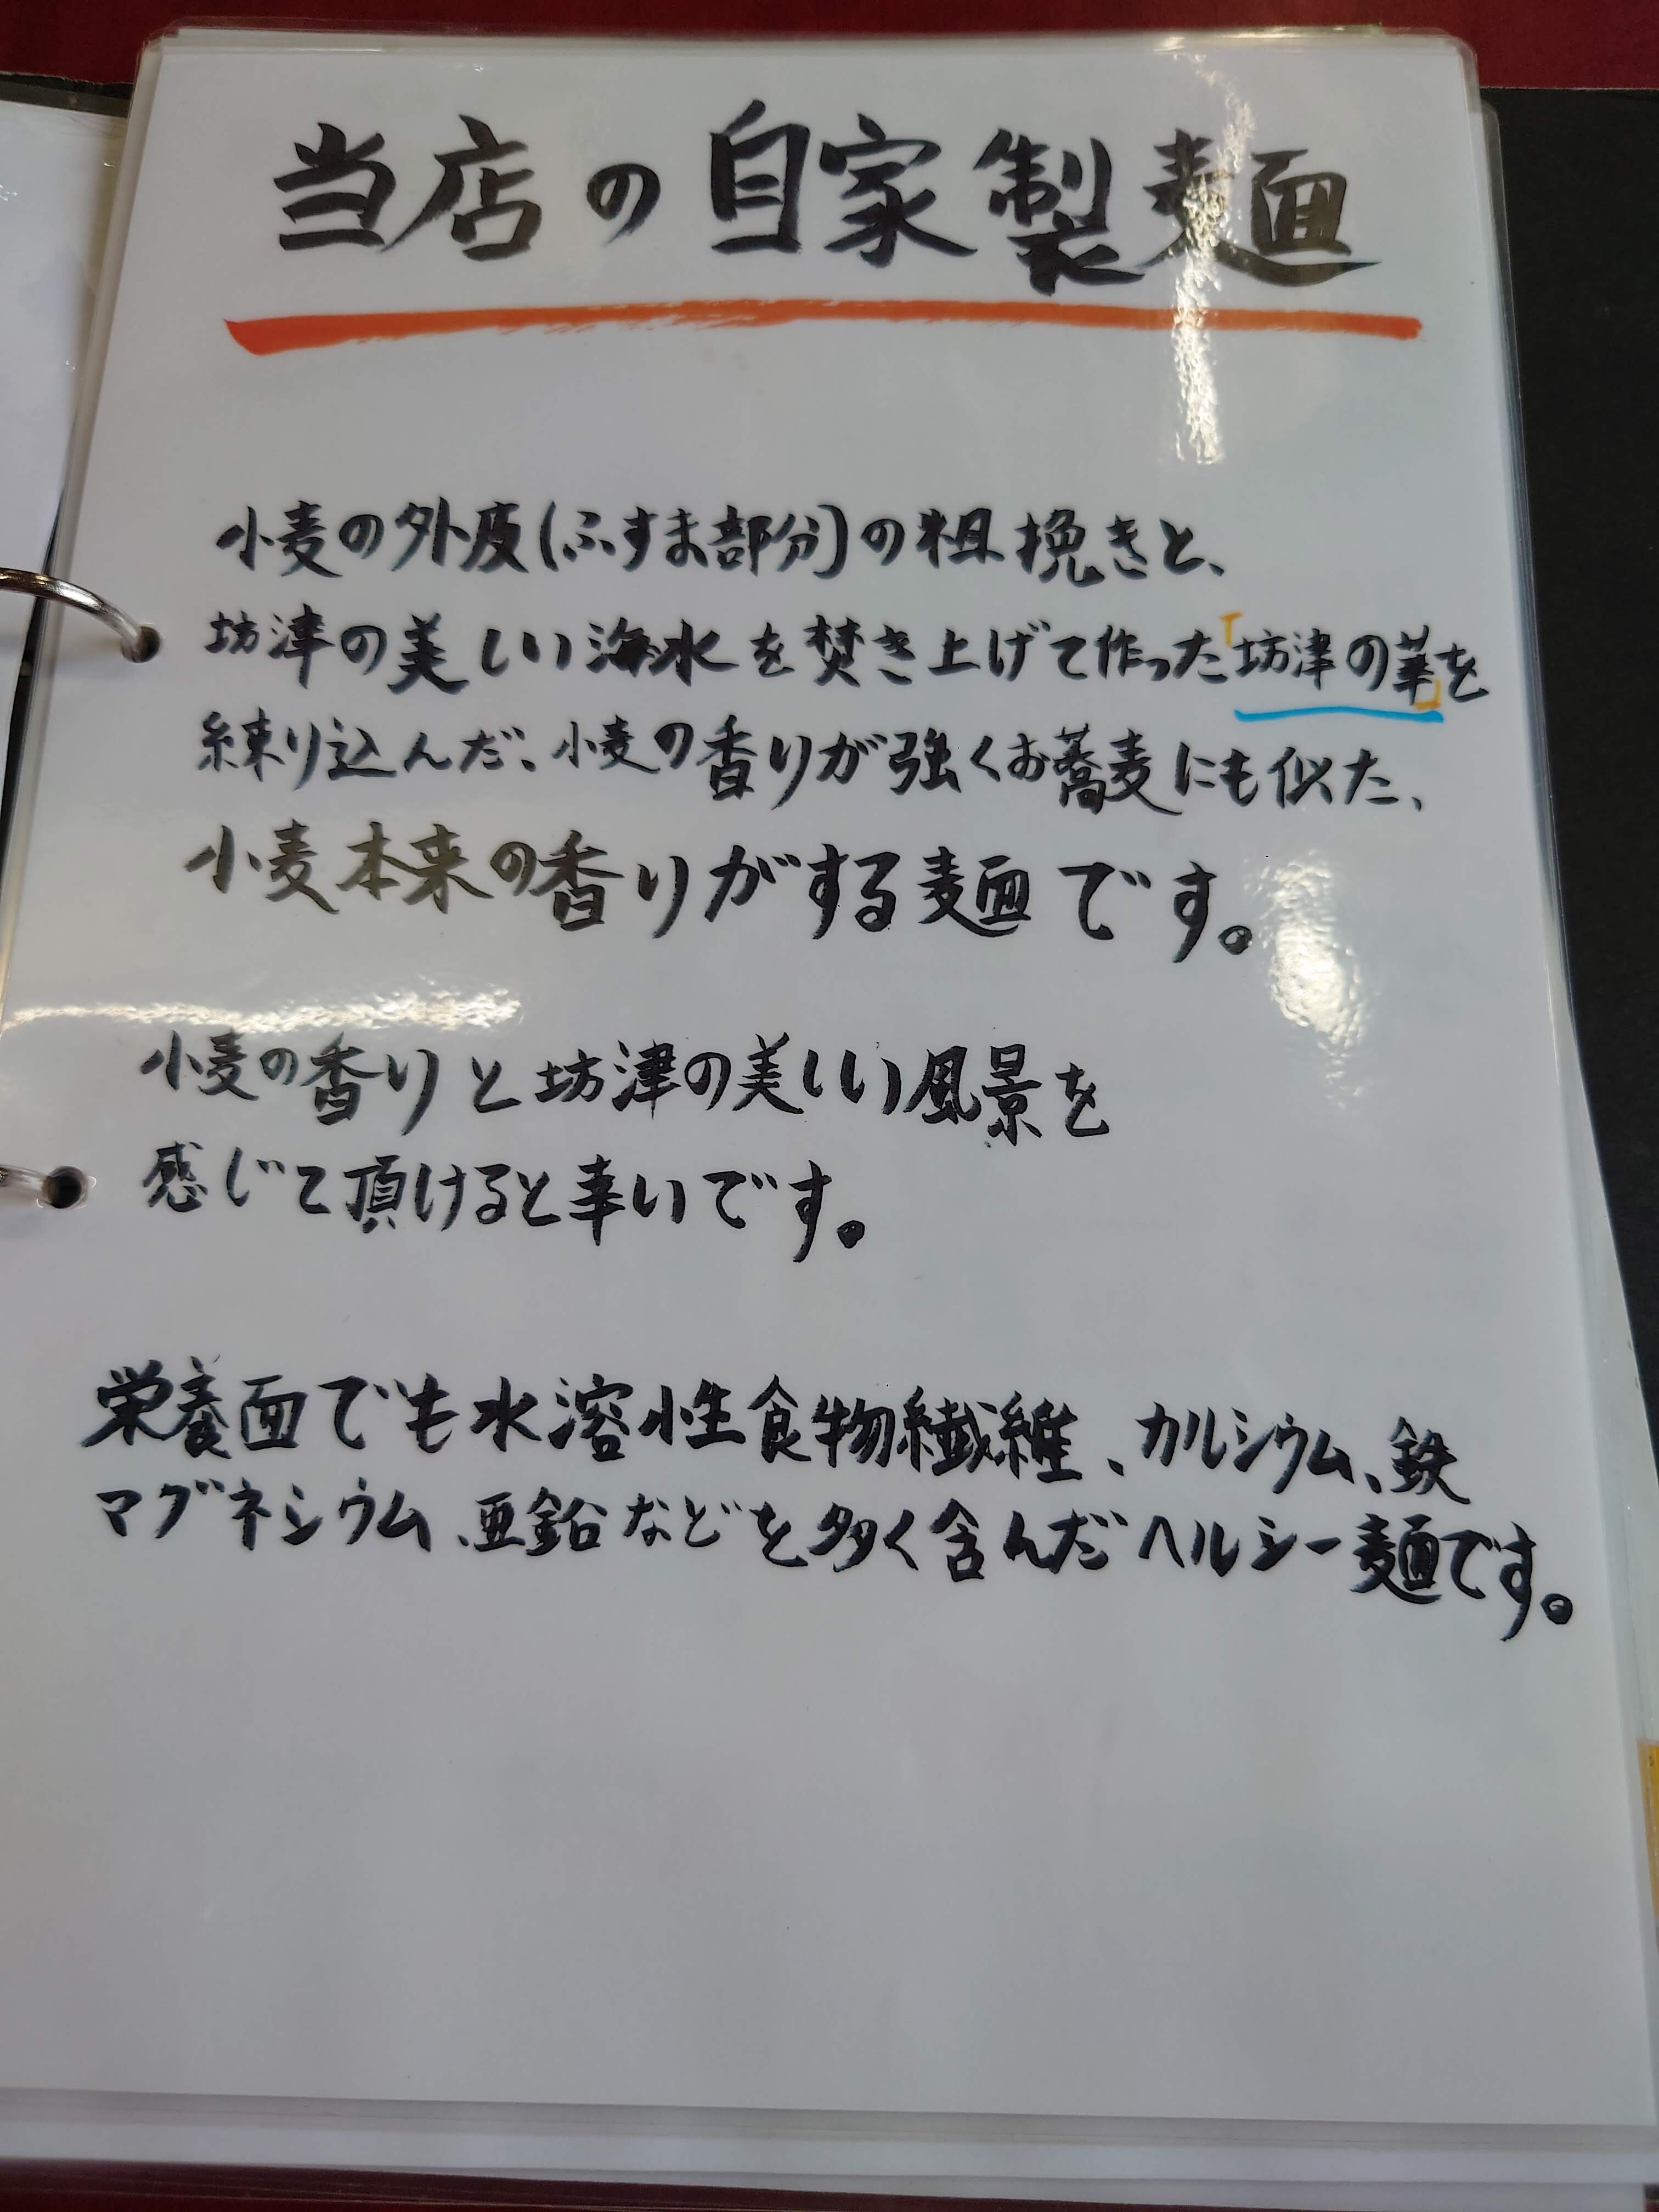 当店の自家製麺
小麦の外皮(ふすま部分)の粗挽きと、
坊津の美しい海水を焚き上げて作った「坊津の華」を
練り込んだ、小麦の香りが強くお蕎麦にも似た、
小麦本来の香りがする麺です。
小麦の香りと坊津の美しい風景を
感じて頂けると幸いです。
栄養面でも水溶性食物繊維、カルシウム、鉄
マグネシウム、亜鉛などを多く含んだヘルシー麺です。